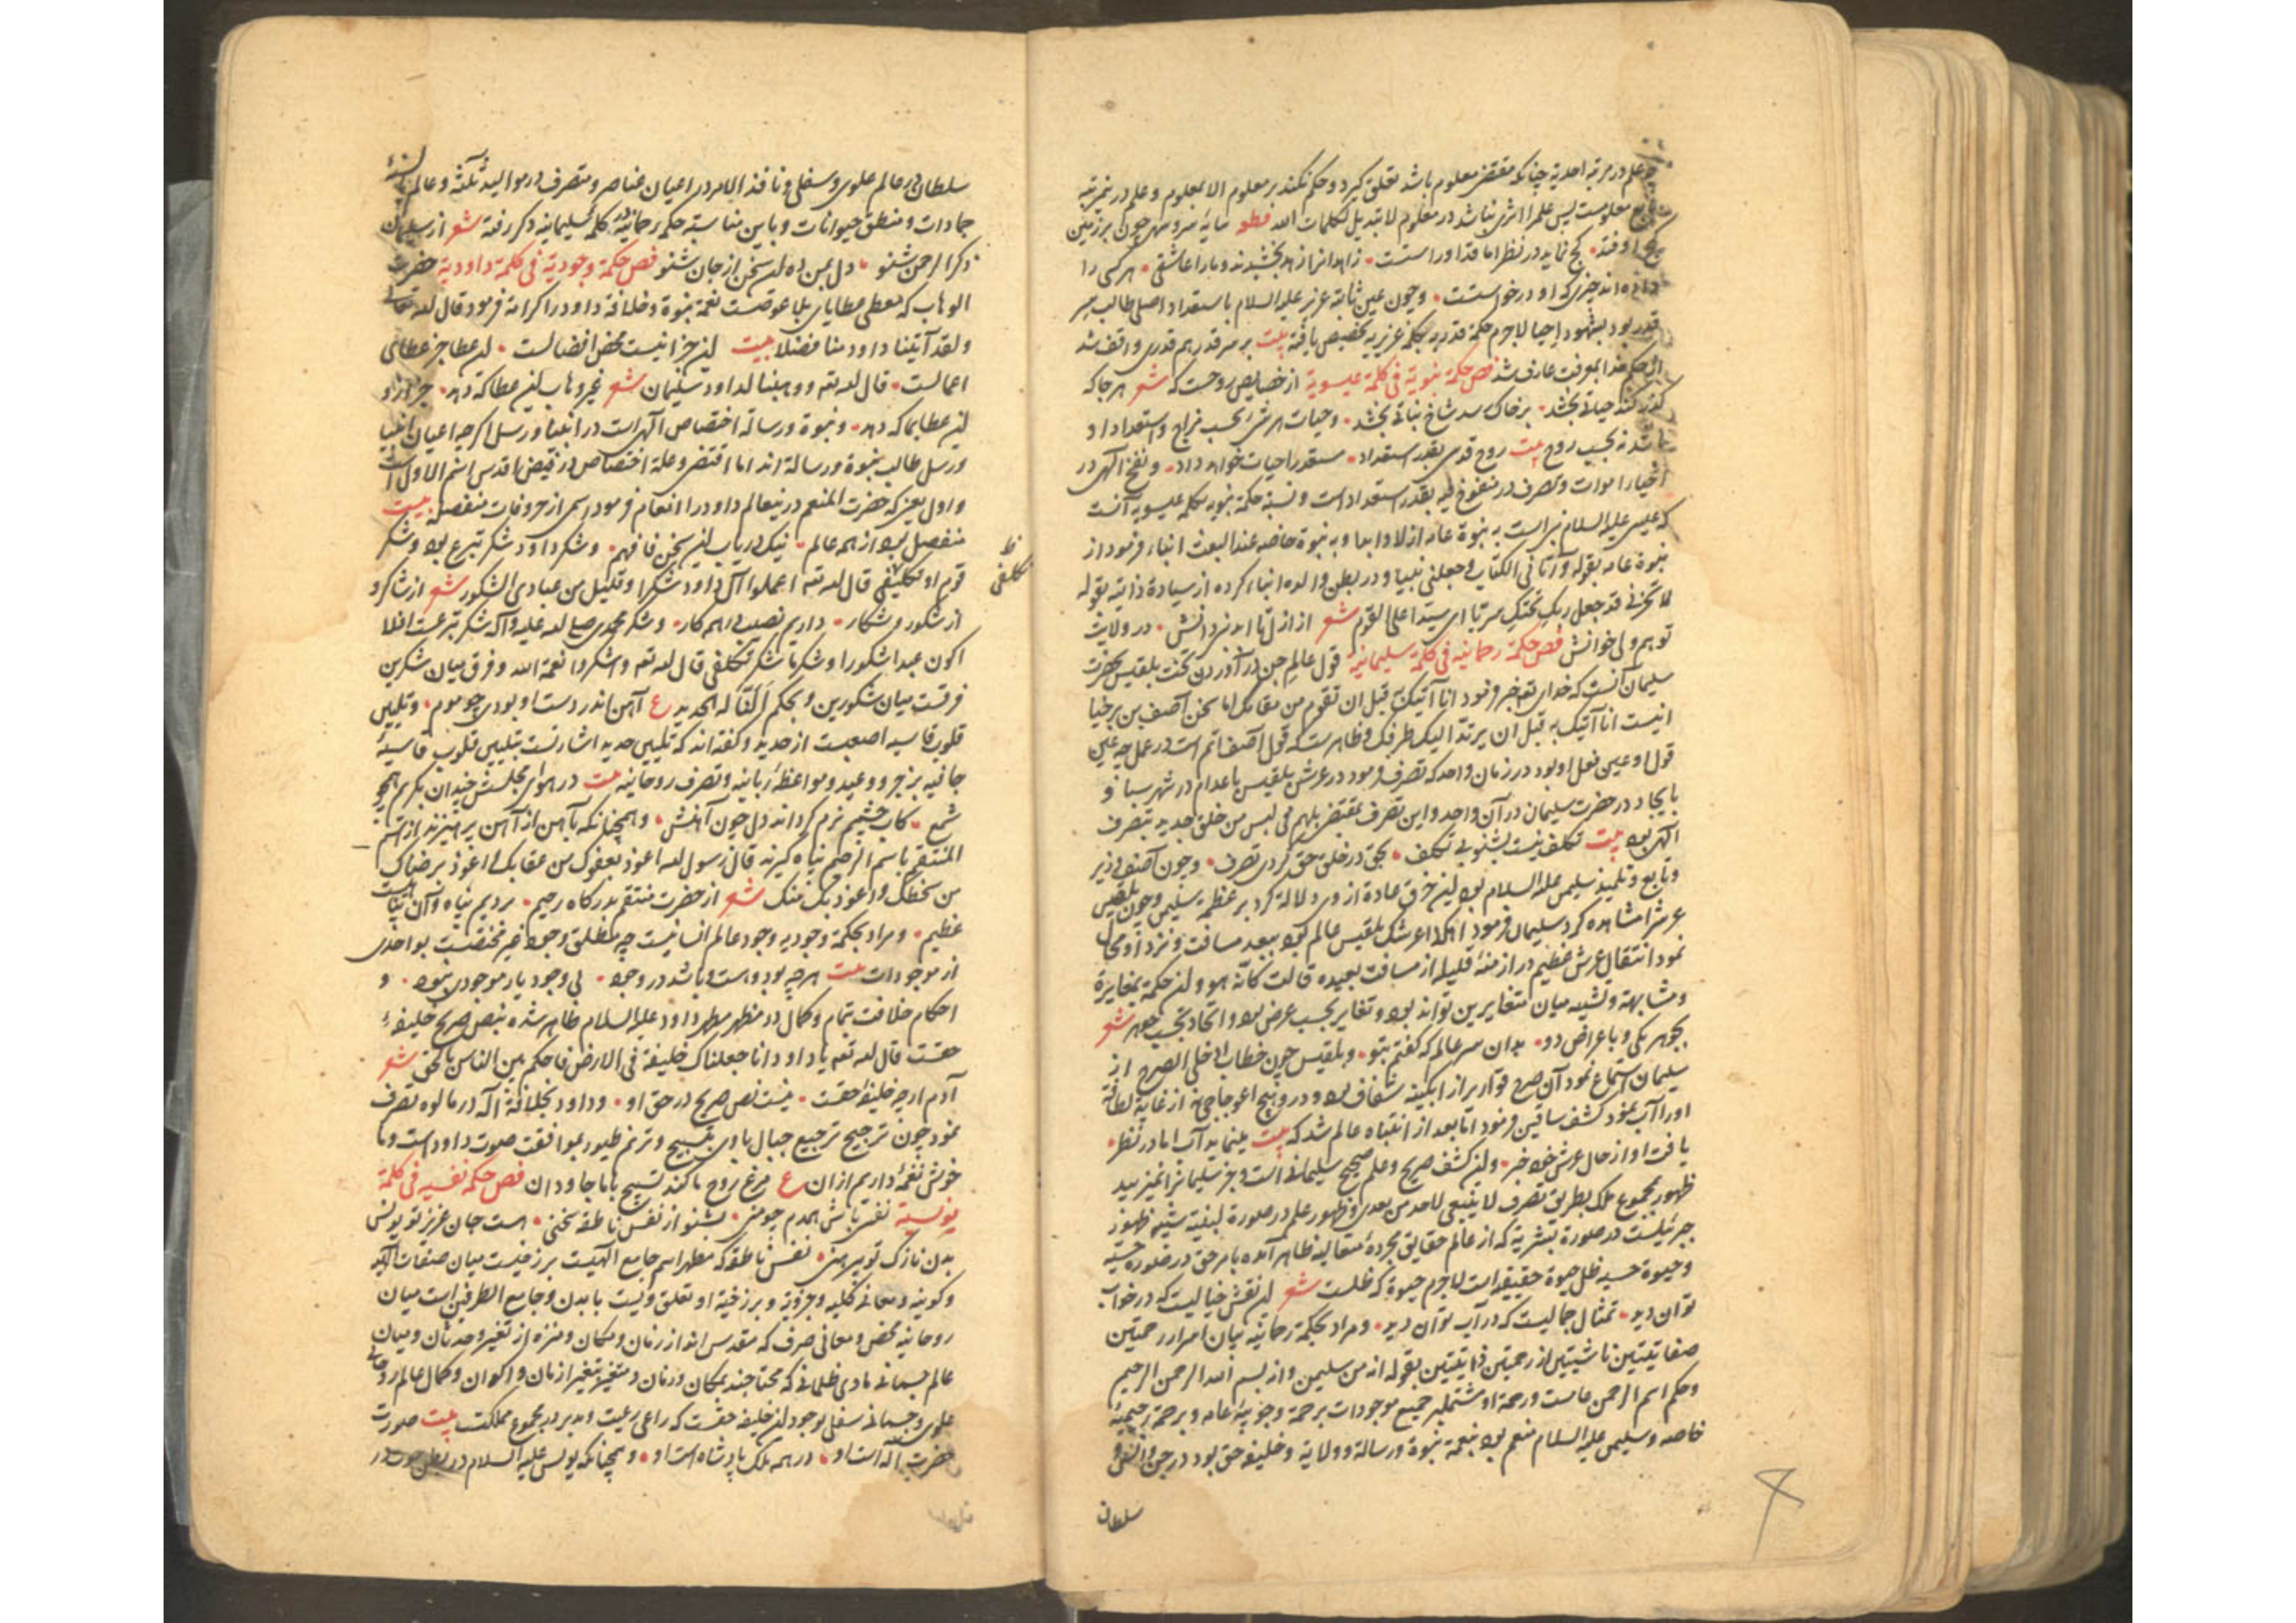 و علم در مرتبه احدیة چنانکه مقتضی معلوم باشد تعلق گیرد و حکم نکند بر معلوم الا بمعلوم و علم درین مرتبه
تابع معلومست پس علم را اثری نباشد در معلوم لا تبدیل لکلمات الله قطعه سایهٔ سرو سهی چون بر زمین
کج اوفتد • کج نماید در نظر اما قد او راستست • زاهدانرا زهد بخشیدند و ما را عاشقی • هر کسی را
داده‌اند چیزی که او درخواستست • و چون عین ثابته عزیر علیه السلام باستعداد اصلی طالب سر
قدر بود بشهود احیا لاجرم حکمة قدریه بکلمه عزیریه تخصیص یافته بیت بر سر قدر هم قدری واقف شد
از حکم خدا بمعرفت عارف شد فص حکمة نبویة فی کلمة عیسویة از خصایص روحست که شعر هر جا که
گذر کند حیاتی بخشد • بر خاک رسد شاخ نباتی بخشد • و حیات هر شیٔ بحسب مزاج و استعداد او
باشد نه بحسب روح بیت روح قدسی بقدر استعداد • مستعد را حیات خواهد داد • و نفخ الهی در
احیاء اموات و تصرف در منفوخ فیه بقدر استعداد است و نسبة حکمة نبویه بکلمه عیسویه آنست
که عیسی علیه السلام نبی است به نبوة عامه ازلا و ابدا و به نبوة خاصه عند البعث انباء فرمود از
نبوة عامه بقوله و آتانی الکتاب و جعلنی نبیا و در بطن والده انباء کرده از سیادة ذاتیه بقوله
لا تحزنی قد جعل ربک تحتک سریا ای سیدا علی القوم شعر از ازل تا ابد نبی دانش • در ولایت
تو هم ولی خوانش فص حکمة رحمانیه فی کلمة سلیمانیه قول عالم جن در آوردن تخت بلقیس بحضرت
سلیمان آنست که خدای تعه خبر فرمود انا آتیک به قبل ان تقوم من مقامک اما سخن آصف بن برخیا
اینست انا آتیک به قبل ان یرتد الیک طرفک و ظاهرست که قول آصف اتم است در عمل چه عین
قول او عین فعل او بود در زمان واحد که تصرف فرمود در عرش بلقیس باعدام در شهر سبا و
بایجاد در حضرت سلیمان در آن واحد و این تصرف بمقتضی بل هم فی لبس من خلق جدید بتصرف
الهی بود بیت تکلف نیست بشنو بی تکلف • بحق در خلق حق کردی تصرف • و چون آصف وزیر
و تابع و تلمیذ سلیمن علیه السلام بود این خرق عادة از وی دلالة کرد بر عظمة سلیمن و چون بلقیس
عرش را مشاهده کرد سلیمان فرمود اهکذا عرشک بلقیس عالم بود ببعد مسافت و نزد او محال
نمود انتقال عرش عظیم در ازمنهٔ قلیله از مسافت بعیده قالت کأنه هو و این حکمة بمغایرة
و مشابهة و تشبیه میان متغایرین تواند بود و تغایر بحسب عرض بود و اتحاد بحسب جوهر شعر
بجوهر یکی و باعراض دو • بدان سر عالم که گفتم بتو • و بلقیس چون خطاب ادخلی الصرح از
سلیمان استماع نمود آن صرح قواریر از ابگینه شفاف بود و درو هیچ اعوجاجی نه از غایة لطافة
او را آب نمود کشف ساقین فرمود اما بعد از انتباه عالم شد که بیت مینماید آب اما در نظر •
یافت او از حال عرش خود خبر • و این کشف صریح و علم صحیح سلیمانی است و جز سلیمانرا نمیزیبید
ظهور بمجموع ملک بطریق تصرف لا ینبغی لاحد من بعدی و ظهور علم در صورة لبنیة شبیه ظهور
جبرئیلست در صورة بشریه که از عالم حقایق مجردهٔ متعالیه ظاهر آمده بامر حق در صورة حسیه
و حیوة حسیه ظل حیوة حقیقیه است لاجرم حیوة که ظلست شعر این نقش خیالیست که در خواب
توان دید • تمثال جمالیست که در آب توان دید • و مراد بحکمة رحمانیه بیان اسرار رحمتین
صفاتیتین ناشیتین از رحمتین ذاتیتین بقوله انه من سلیمن و انه بسم الله الرحمن الرحیم
و حکم اسم الرحمن عامست و رحمة او مشتملبر جمیع موجودات برحمة وجوبیهٔ عامه و برحمة رحیمیهٔ
خاصه و سلیمن علیه السلام منعم بود بنعمة نبوة و رسالة و ولایة و خلیفهٔ حق بود در جن و انس و
سلطان
سلطانی در عالم علوی و سفلی و نافذ الامر در اعیان عناصر و متصرف در موالید ثلثه و عالم بالسنهٔ
جمادات و منطق حیوانات و باین مناسبة حکمة رحمانیه در کلمهٔ سلیمانیه ذکر رفته شعر از سلیمان
ذکر الرحمن شنو • دل بمن ده این سخن از جان شنو فص حکمة وجودیة فی کلمة داودیة حضرت
الوهاب که معطی عطایای بلا عوضست نعمة نبوة و خلافة داود را کرامة فرمود قال الله تعالی
و لقد آتینا داود منا فضلا بیت این جزا نیست محض افضالست • این عطا جز عطای
اعمالست • قال الله تعه و وهبنا لداود سلیمان شعر غیر وهاب این عطا که دهد • جز از او
این عطا بما که دهد • و نبوة و رسالة اختصاص الهی است در انبیا و رسل اگرچه اعیان انبیا
و رسل طالب نبوة و رسالة اند اما اقتضی و علة اختصاص در فیض اقدس اسم الاول است
و اول چیزی که حضرت المنعم درین عالم داود را انعام فرمود اسمی از حروفات منفصله بیت
منفصل بود از همه عالم • نیک دریاب این سخن فافهم • و شکر داود شکر تبرع بود و شکر
قوم او تکلیفی قال الله تعه اعملوا آل داود شکرا و قلیل من عبادی الشکور شعر از شاکر و
از شکور و شکار • داریم نصیب از همه کار • و شکر محمدی صلی الله علیه و آله شکر تبرعست افلا
اکون عبدا شکورا و شکر ما شکر تکلفی قال الله تعه و اشکروا نعمة الله و فرق میان شکرین
فرقست میان شکورین و بحکم و النا له الحدید ع آهن اندر دست او بودی چو موم • و تلیین
قلوب قاسیه اصعبست از حدید و گفته‌اند که تلیین حدید اشارتست بتلیین قلوب قاسیهٔ
جافیه بزجر و وعید و مواعظ ربانیه و تصرف روحانیه بیت در هوای مجلسش چندان بگریم همچو
شمع • کاب چشمم نرم گرداند دل چون آهنش • و همچنانکه بآهن از آهن بپرهیزند از اسم
المنتقم باسم الرحیم پناه گیرند قال رسول الله اعوذ بعفوک من عقابک و اعوذ برضاک
من سخطک و اعوذ بک منک شعر از حضرت منتقم بدرگاه رحیم • بردیم پناه و آن پناهیست
عظیم • و مراد بحکمة وجودیه وجود عالم انسانیست چه مطلق وجود غیر مختصست بواحدی
از موجودات بیت هرچه بود و هست و باشد در وجود • بی وجود یار موجودی نبود • و
احکام خلافت بتمام و کمال در مظهر مطهر داود علیه السلام ظاهر شده بنص صریح خلیفهٔ
حقست قال الله تعه یا داود انا جعلناک خلیفة فی الارض فاحکم بین الناس بالحق شعر
آدم ارچه خلیفهٔ حقست • نیست نص صریح در حق او • و داود بخلافة اله در مالوه تصرف
نمود چون ترجیح ترجیع جبال با وی بتسبیح و ترنم طیور بموافقت صوت داود است و ما
خوش نغمهٔ داریم از ان ع مرغ روح ما کند تسبیح با ما جاودان فص حکمة نفسیه فی کلمة
یونسیة نفسی باش همدم چو منی • بشنو از نفس ناطقه سخنی • هست جان عزیز تو یونس
بدن نازک تو پیرهنی • نفس ناطقه که مظهر اسم جامع الهیست برزخیست میان صفات الهیه
و کونیه و معانی کلیه و جزویه و برزخیة او تعلق ویست بابدن و جامع الطرفین است میان
روحانیه محض و معانی صرف که مقدس‌اند از زمان و مکان و منزه از تغیر و حدثان و میان
عالم جسمانی مادی ظلمانی که محتاجند بمکان و زمان و متغیر بتغیر ازمان و اکوان و کمال عالم روحانی
علوی و جسمانی سفلی بوجود این خلیفه حقست که راعی رعیت و مدبر در مجموع مملکت بیت صورت
حضرت اله است او • در همه ملک پادشاه است او • و همچنانکه یونس علیه السلام در بطن حوت در
ظ
تکلفی